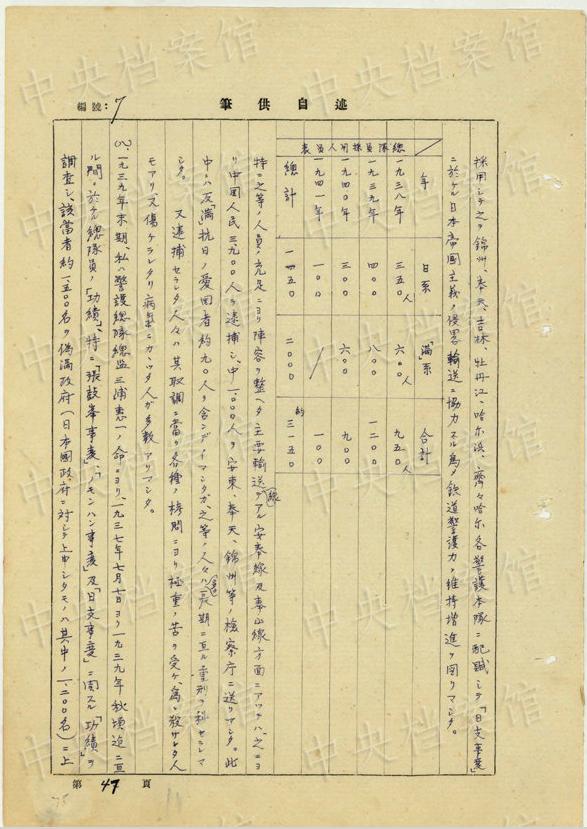 筆供自述
編號：7
採用シテ之ヲ錦州、奉天、吉林、牡丹江、哈尓浜、齊々哈尓各警護本隊ニ配職シテ「日支事変」
ニ於ケル日本帝國主義ノ侵畧輸送ニ協力スル為メ鉄道警護力ノ維持増進ヲ図リマシタ。
總隊員採用人員表
年 日系 「満」系 合計
一九三八年 三五〇人 六〇〇人 九五〇人
一九三九年 四〇〇 八〇〇 一二〇〇
一九四〇年 三〇〇 六〇〇 九〇〇
一九四一年 一〇〇 / 一〇〇
總計 一一五〇 二〇〇〇 約三一五〇
特ニ之等ノ人員ノ充足ニヨリ陣容ヲ整ヘタ主要輸送線デアル安奉線及奉山線方面ニアツテハ、之ニヨ
リ中国人民三九〇〇人ヲ逮捕シ、中一〇〇〇人ヲ安東、奉天、錦州等ノ檢察庁ニ送リマシタ。此
中ニハ反「満」抗日ノ愛国者約九〇人ヲ含ンデイマシタガ、之等ノ人々ハ長期ニ亘ル重刑ヲ科セラレマ
シタ。 又逮捕セラレタ人々ハ其取調ニ當リ各種ノ拷問ニヨリ極重ノ苦ヲ受ケ、為ニ殺サレタ人
モアリ又傷ケラレタリ病気ニカヽツタ人が多数アリマシタ。
(八)、一九三九年末期、私ハ警護總隊總監三浦惠一ノ命ニヨリ、一九三七年七月七日ヨリ一九三九年秋頃迄ニ亘
ル間ニ於ケル總隊員ノ「功績」、特ニ「張鼓峯事変」、「ノモンハン事変」及「日支事変」ニ関スル「功績」ヲ
調査シ、該當者約一五〇〇名ヲ偽満政府（日本國政府ニ対シテ上申シタモノハ其中ノ一二〇〇名）ニ上
第 47 頁
中央档案馆